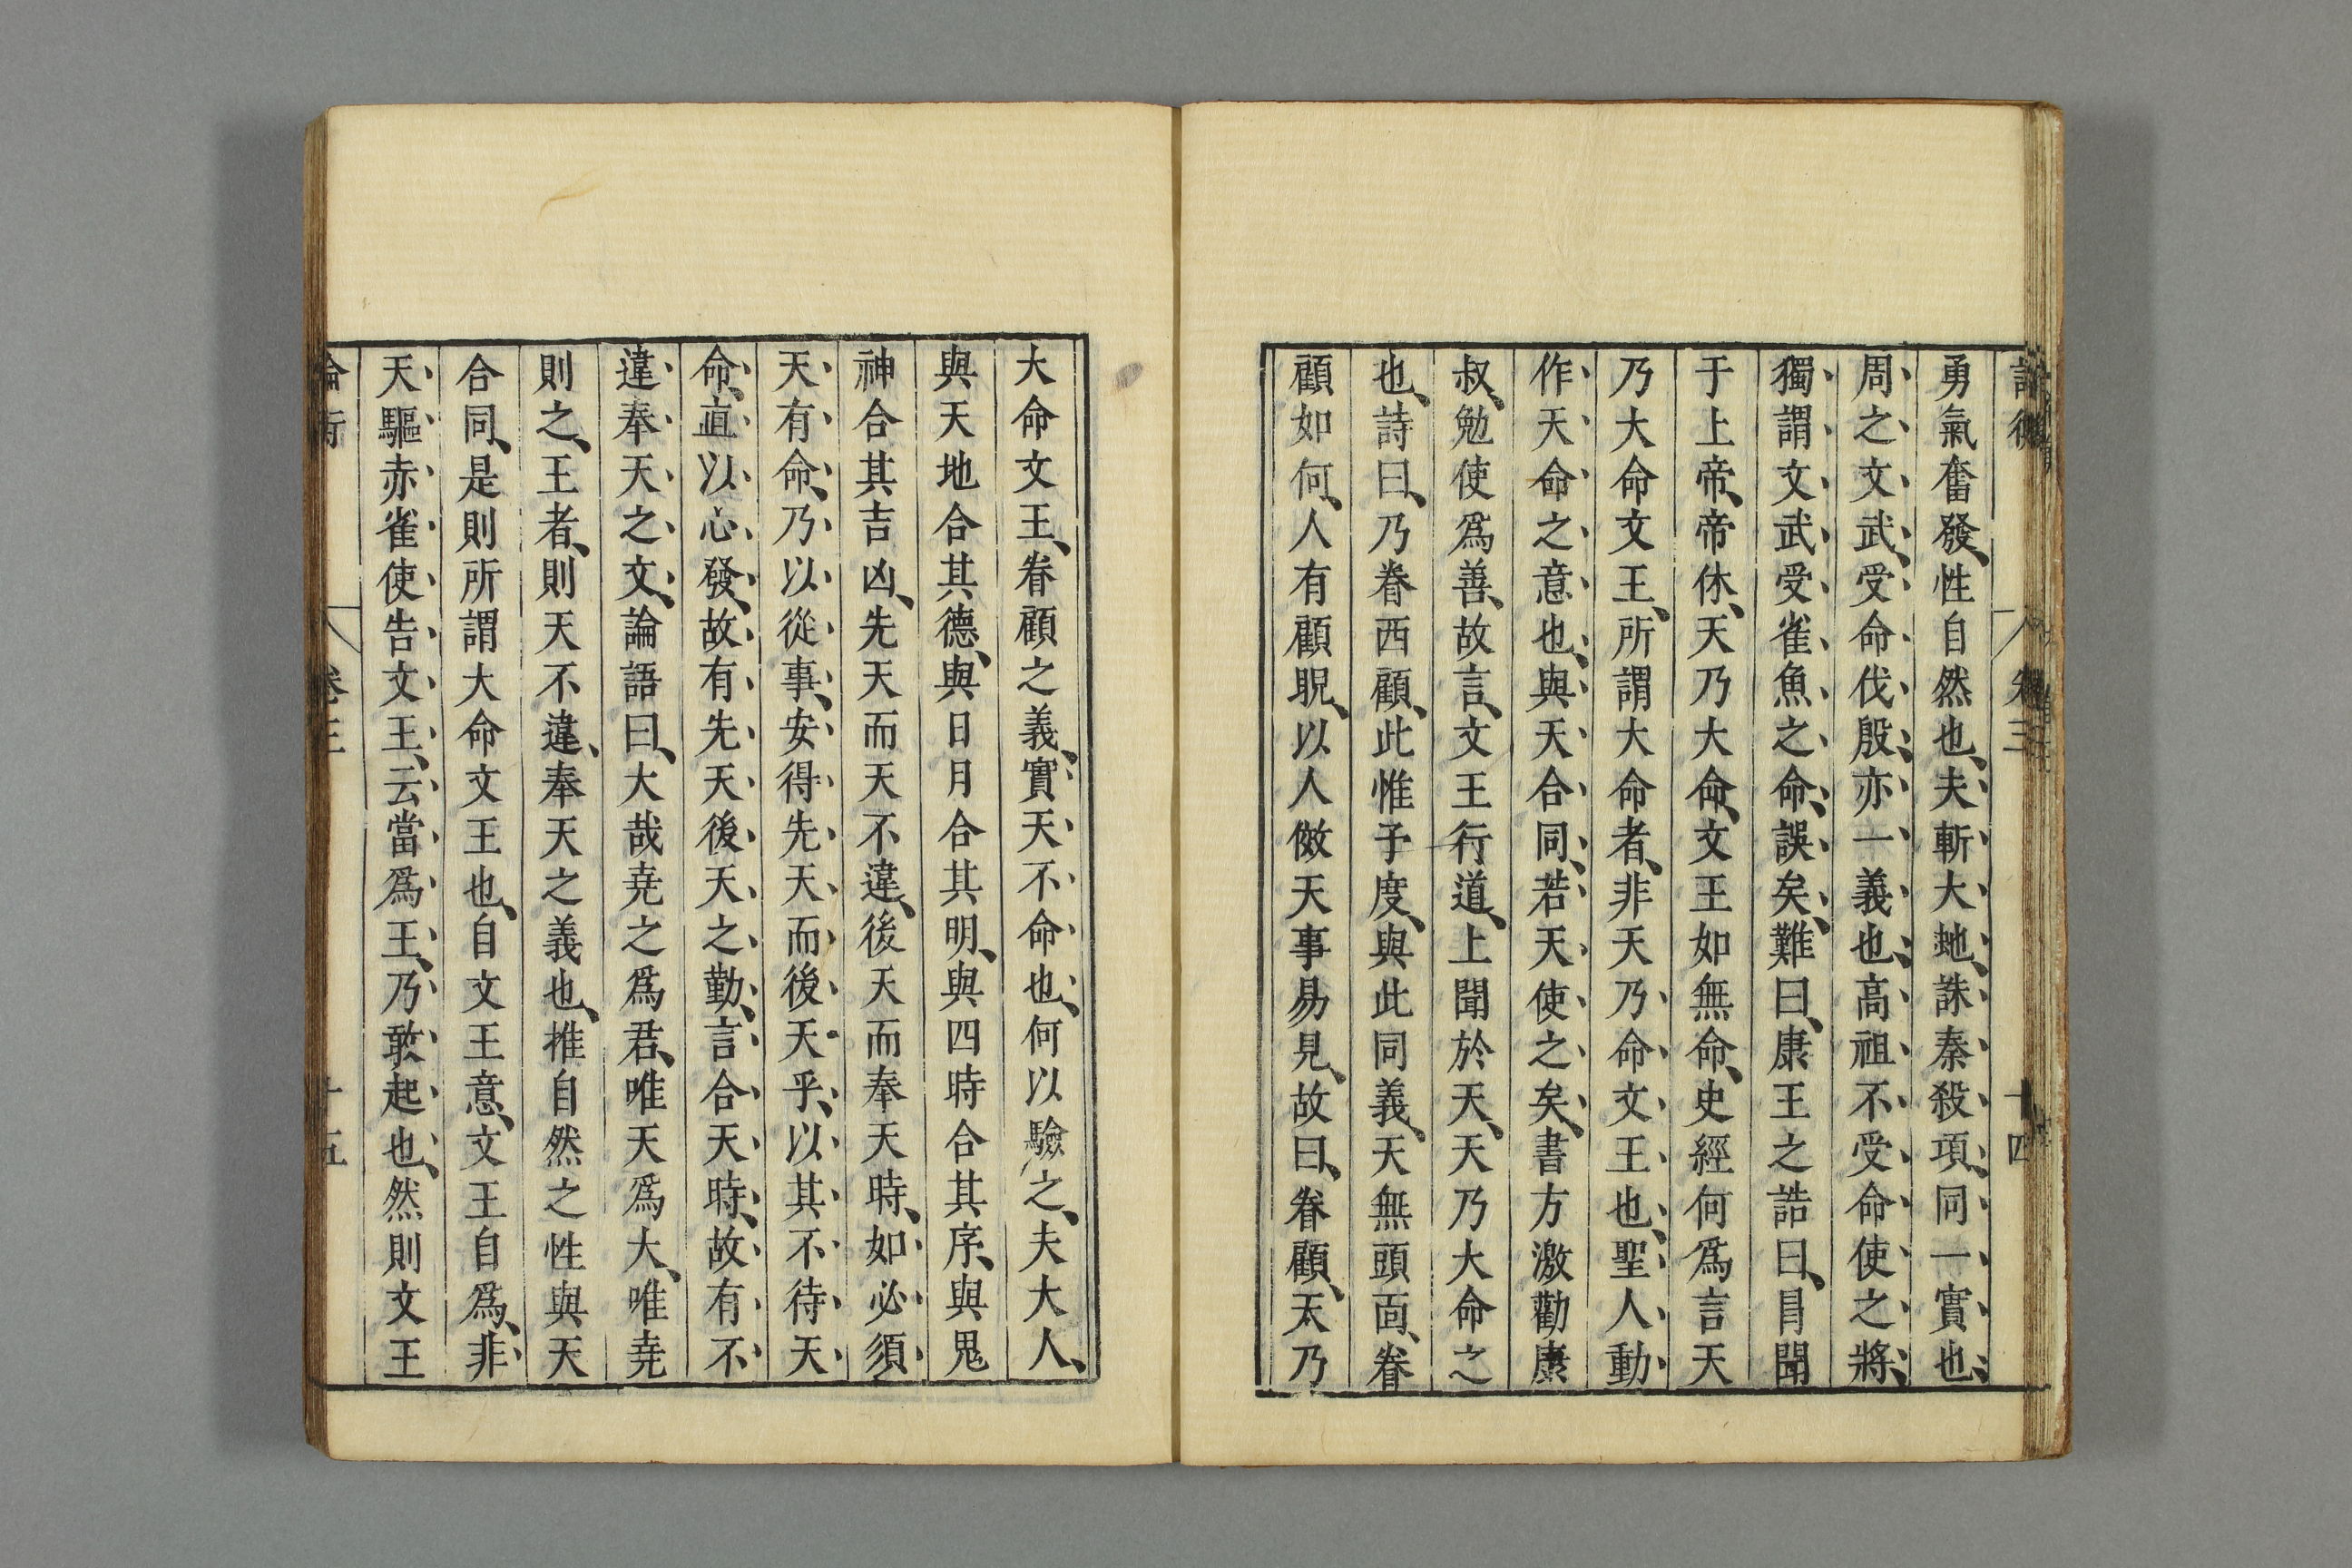 勇氣奮發、性自然也、夫斬大虵、誅秦殺項、同一實也、
周之文武、受命伐殷、亦一義也、高祖不受命使之將、
獨謂文武受雀魚之命、誤矣、難曰、康王之誥曰、冐聞
于上帝、帝休、天乃大命、文王如無命、史經何爲言天
乃大命文王、所謂大命者、非天乃命文王也、聖人動
作、天命之意也、與天合同、若天使之矣、書方激勸康
叔、勉使爲善、故言、文王行道、上聞於天、天乃大命之
也、詩曰、乃眷西顧、此惟予度、與此同義、天無頭面、眷
顧如何、人有顧睨、以人傚天事易見、故曰、眷顧、天乃
大命文王、眷顧之義、實天不命也、何以驗之、夫大人、
與天地合其德、與日月合其明、與四時合其序、與鬼
神合其吉凶、先天而天不違、後天而奉天時、如必須
天有命、乃以從事、安得先天而後天乎、以其不待天
命、直以心發、故有先天後天之勤、言合天時、故有不
違奉天之文、論語曰、大哉堯之爲君、唯天爲大、唯堯
則之、王者、則天不違、奉天之義也、推自然之性與天
合同、是則所謂大命文王也、自文王意、文王自爲、非
天驅赤雀使告文王、云當爲王、乃敢起也、然則文王
論衡 卷三 十五